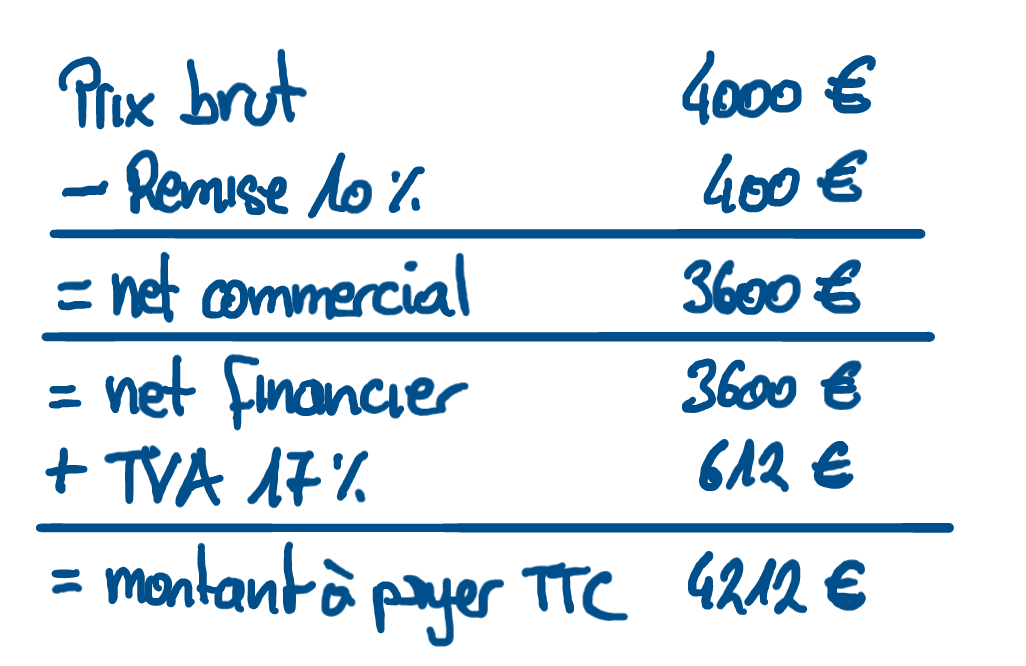 Prix brut 4000 €
- Remise 10 % 400 €
= net commercial 3600 €
= net financier 3600 €
+ TVA 17 % 612 €
= montant à payer TTC 4212 €